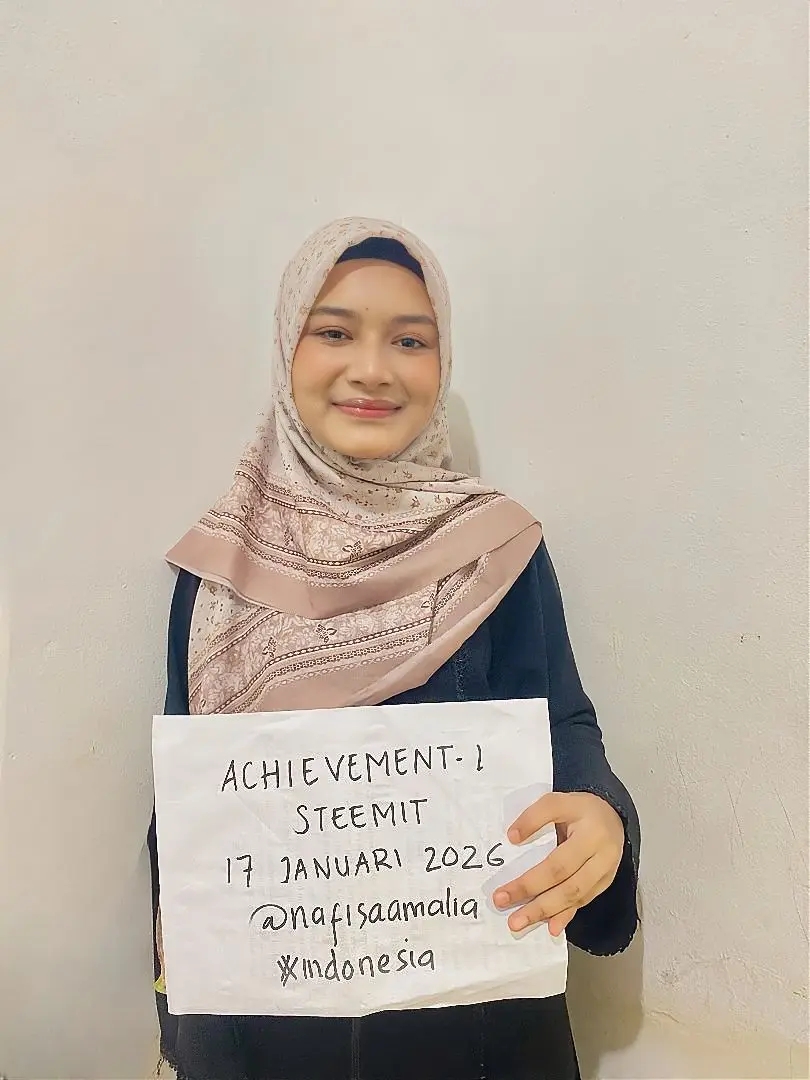 ACHIEVEMENT-1
STEEMIT
17 JANUARI 2026
@nafisaamalia
#indonesia